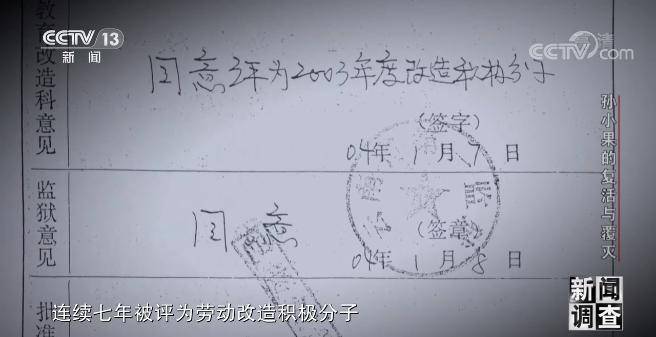 CCTV 13
新闻
高清
CCTV.com
教育改造科意见
同意评为2003年度改造积极分子
(签字)
04年1月7日
监狱意见
同意
(签章)
04年1月8日
批准
孙小果的复活与覆灭
连续七年被评为劳动改造积极分子
新闻
调查